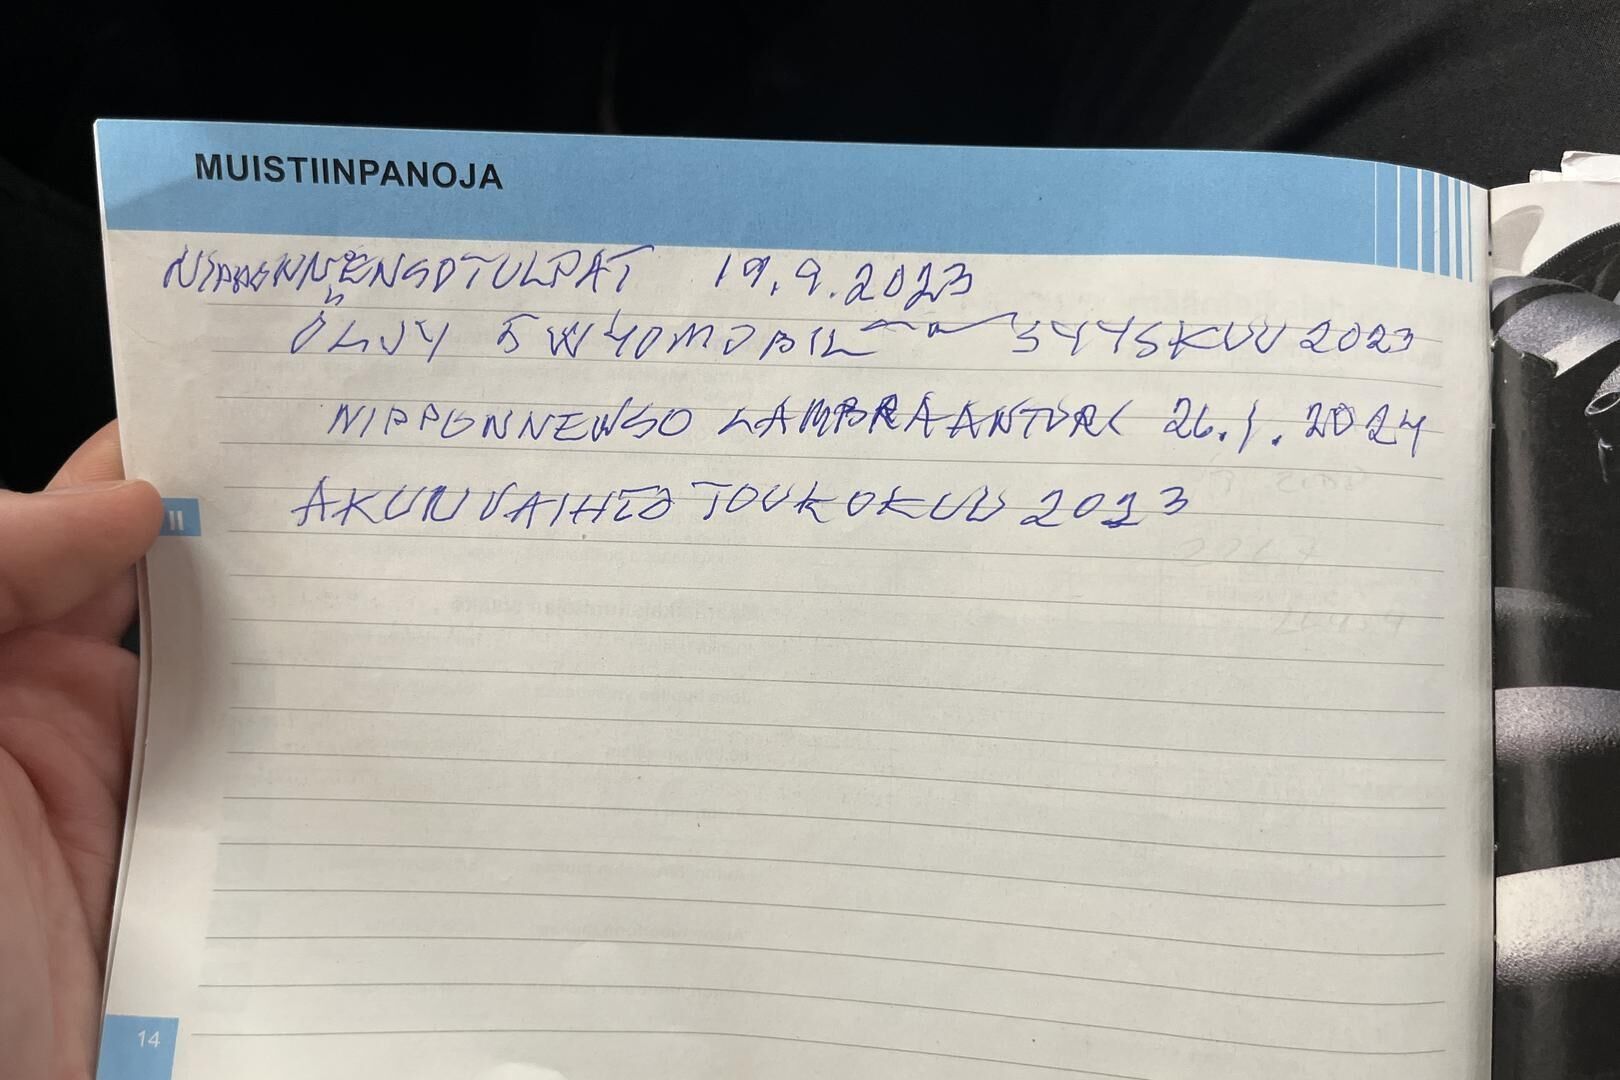 MUISTIINPANOJA
NIPPONNENSOTULPAT 19.9.2023
ÖLJY 5W40MOBIL SYYSKUU 2023
NIPPONNENSO LAMBRAANTURI 26.1.2024
AKUNVAIHTO TOUKOKUU 2023
II
14